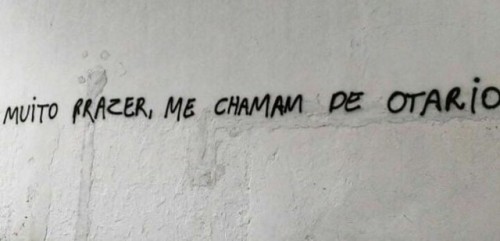 MUiTO PRAZER, ME CHAMAM DE OTARiO